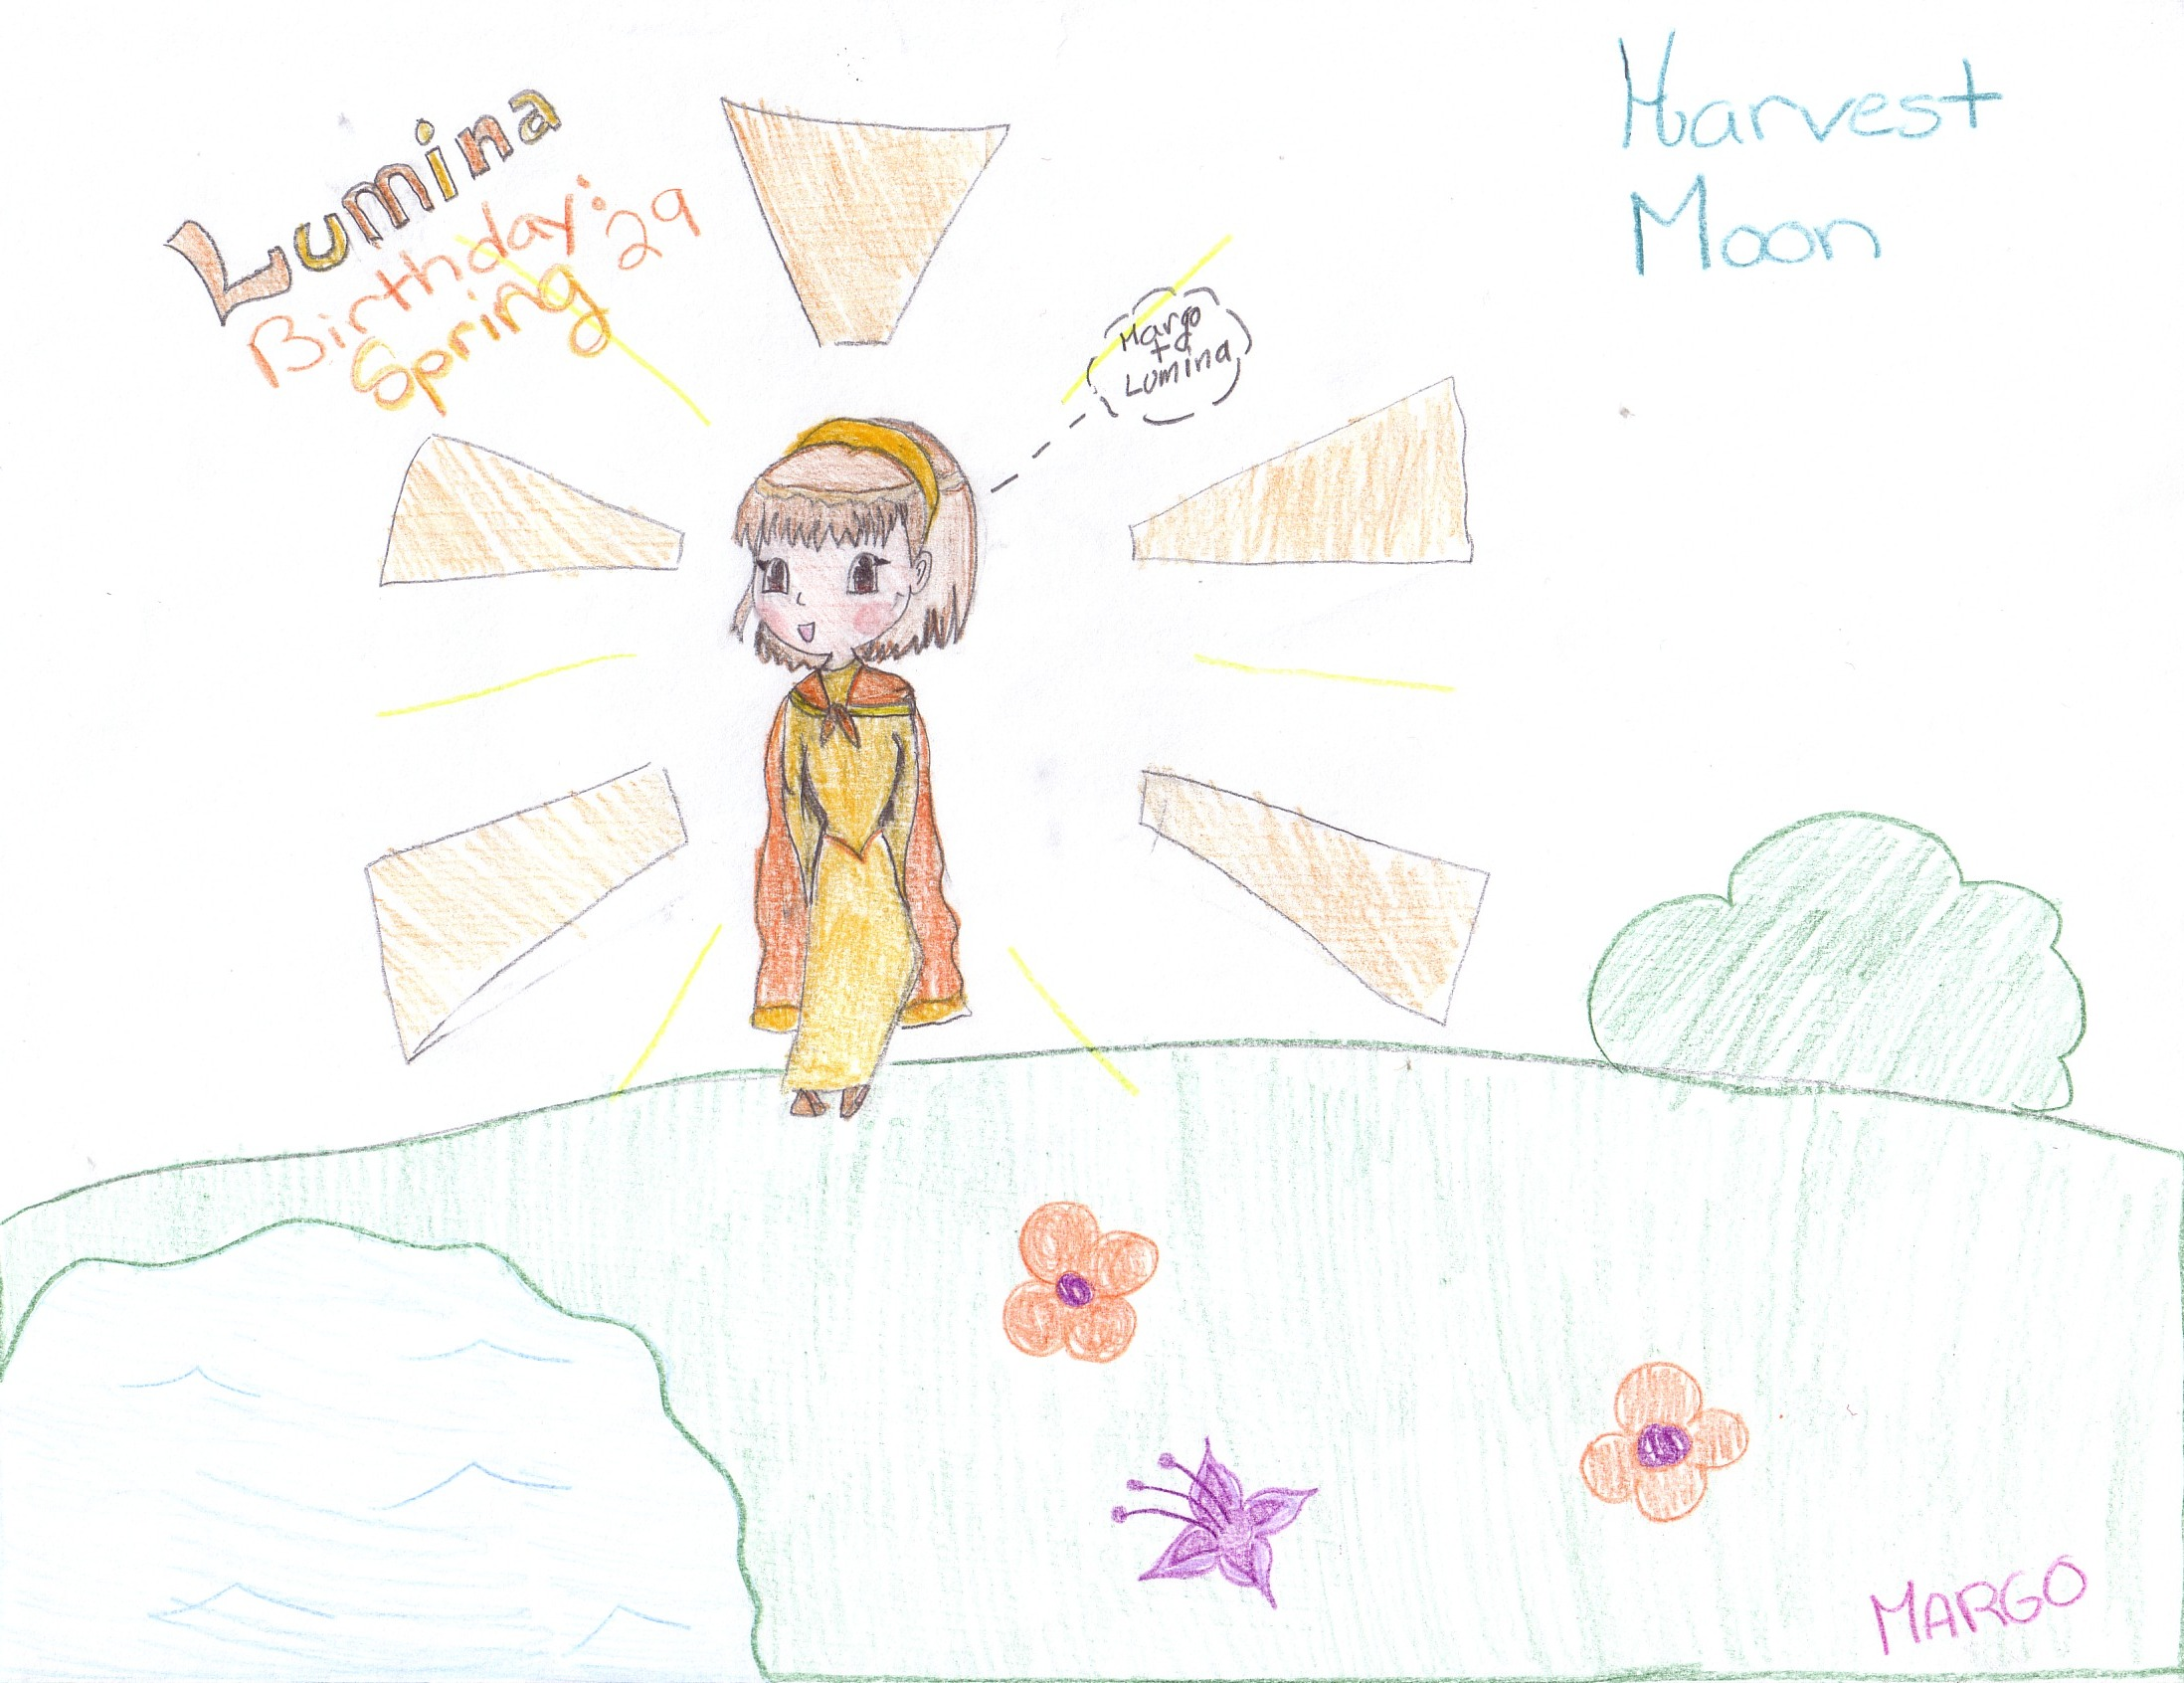 Lumina
Birthday:
Spring 29
Harvest
Moon
Margo
+
Lumina
MARGO